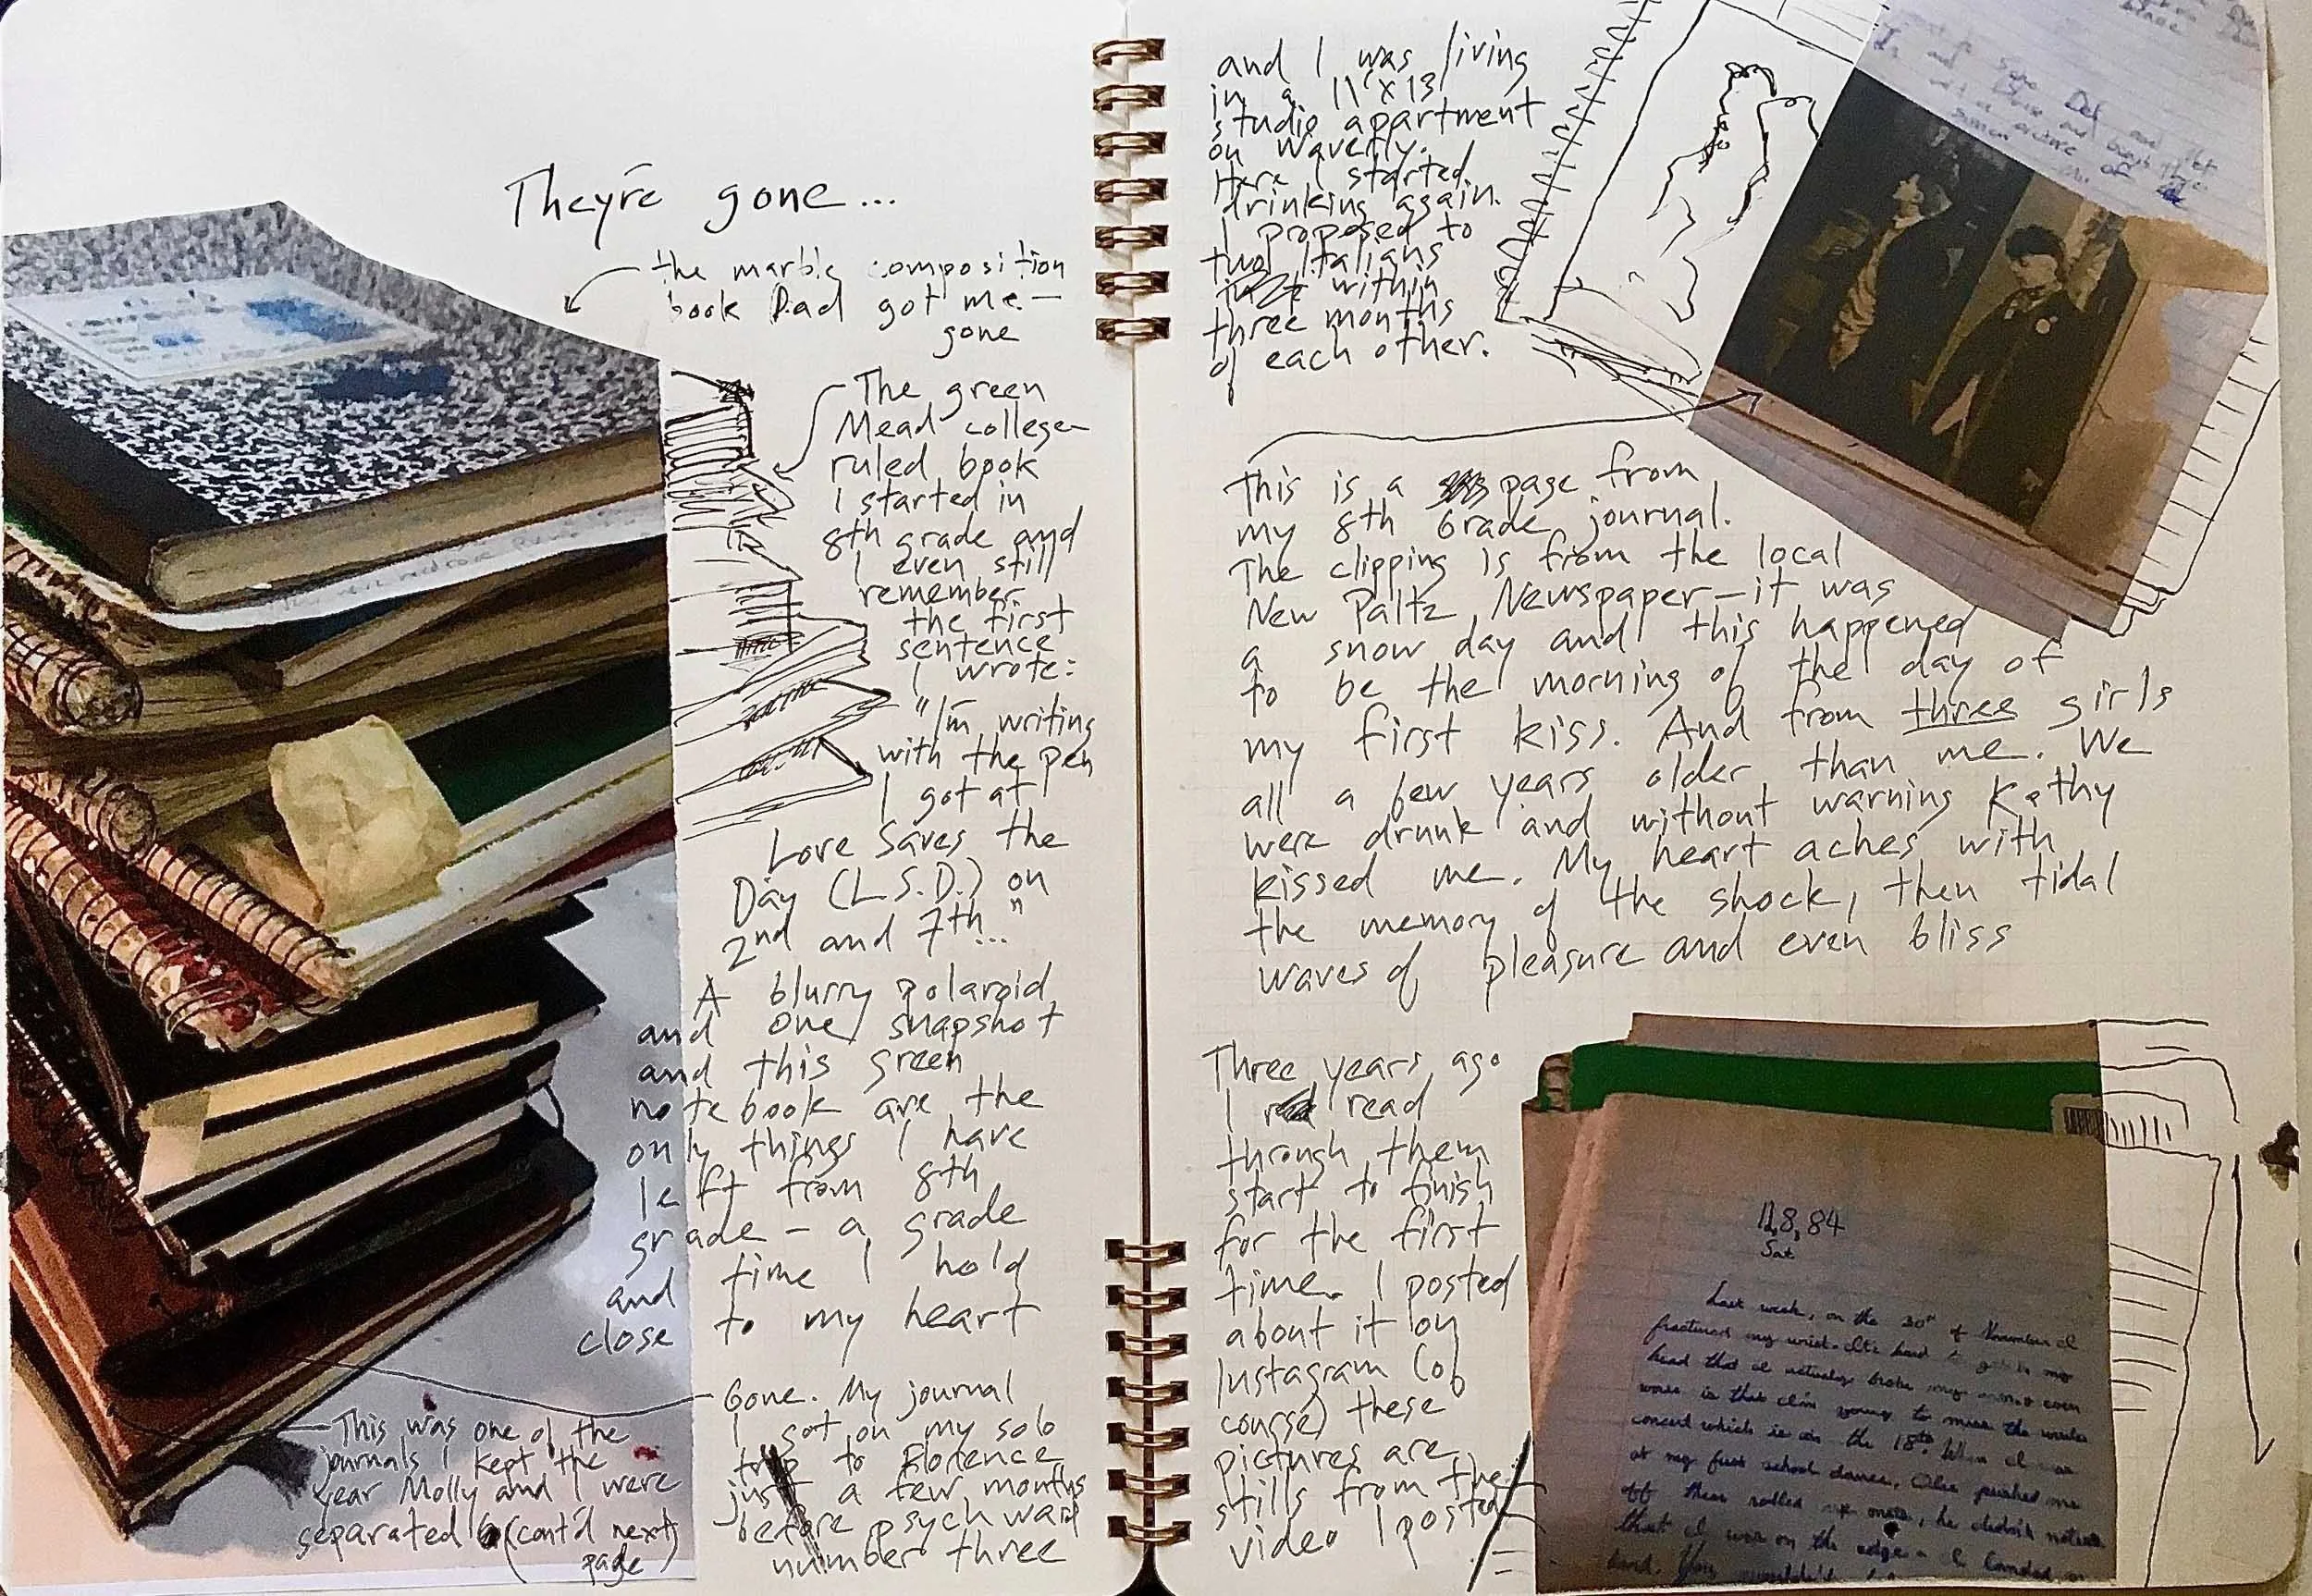 They're gone...
the marble composition
book Dad got me —
gone
The green
Mead college-
ruled book
I started in
8th grade and
I even still
remember
the first
sentence
I wrote:
"I'm writing
with the pen
I got at
Love Saves the
Day (L.S.D.) on
2nd and 7th..."
A blurry polaroid,
and one snapshot
and this green
notebook are the
only things I have
left from 8th
grade - a grade
and time I hold
close to my heart
Gone. My journal
I got on my solo
trip to Florence
just a few months
before psych ward
number three
This was one of the
journals I kept the
year Molly and I were
separated (cont'd next
page)
and I was living
in a 11'x13'
studio apartment
on Waverly.
Here I started
drinking again.
I proposed to
two Italians
within
three months
of each other.
This is a page from
my 8th Grade journal.
The clipping is from the local
New Paltz Newspaper—it was
a snow day and this happened
to be the morning of the day of
my first kiss. And from three girls
all a few years older than me. We
were drunk and without warning Kathy
kissed me. My heart aches with
the memory of the shock, then tidal
waves of pleasure and even bliss
Three years ago
I read
through them
start to finish
for the first
time. I posted
about it on
Instagram (of
course) these
pictures are
stills from the
video I posted
12,8,84
Sat
Last week, on the 30th of November I
fractured my wrist. It's hard to get in my
head that I actually broke my even
worse is that I'm going to miss the winter
concert which is on the 18th. When I was
at my first school dance, pushed me
off then rolled me over, he didn't notice
that I was on the edge - I landed on
hand. You wouldn't